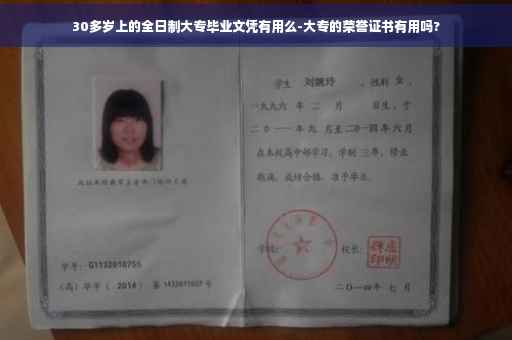 30多岁上的全日制大专毕业文凭有用么-大专的荣誉证书有用吗?
学生 刘婉玲 ，性别 女 ，
一九九六 年 二 月 日生，于
二〇一一年 九 月至二〇一四年 六 月
在本校高中部学习，学制 三年，修业
期满，成绩合格，准予毕业。
学校： 校长：
学号： G1132010755
（高）毕字（ 2014 ）第 1432011027 号
二〇一四年 七 月